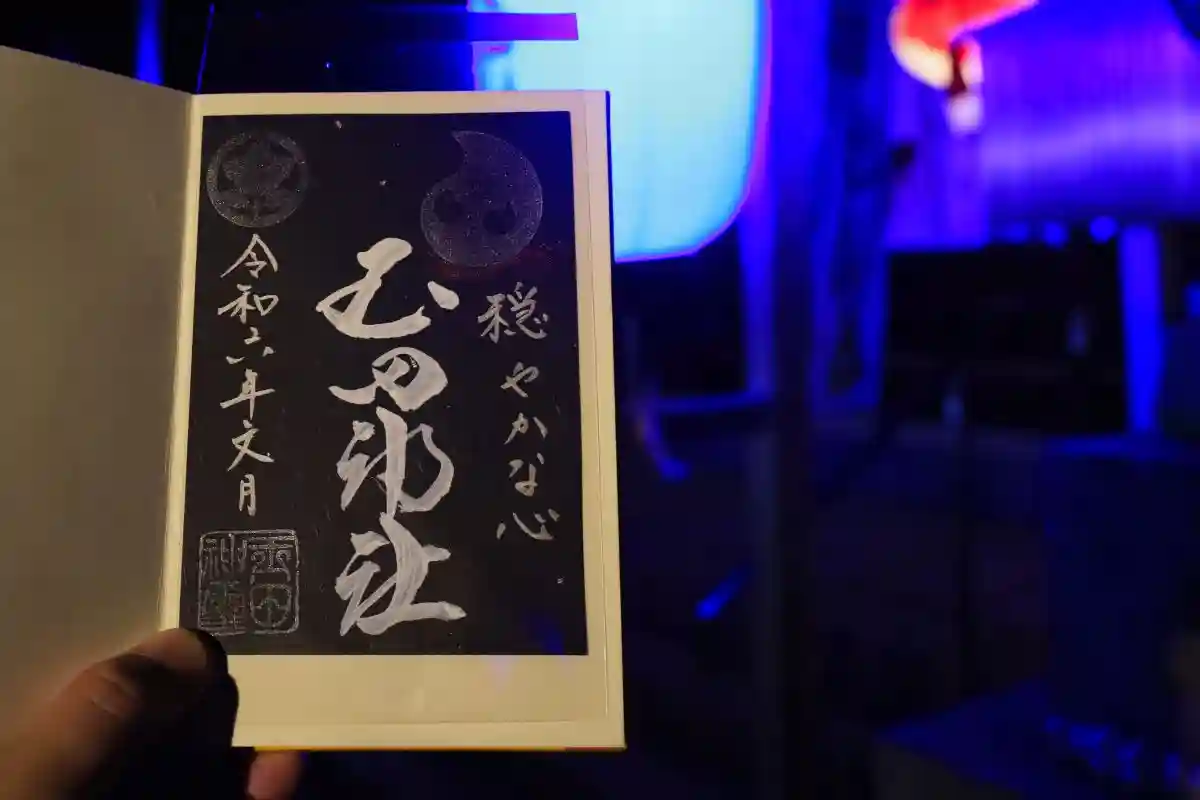 穏やかな心
玉田神社
令和六年文月
玉田
神璽